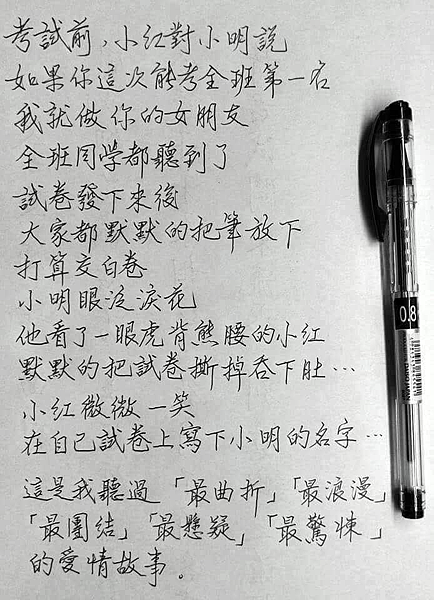 考試前，小紅對小明說
如果你這次能考全班第一名
我就做你的女朋友
全班同學都聽到了
試卷發下來後
大家都默默的把筆放下
打算交白卷
小明眼泛淚花
他看了一眼虎背熊腰的小紅
默默的把試卷撕掉吞下肚…
小紅微微一笑
在自己試卷上寫下小明的名字…
這是我聽過「最曲折」「最浪漫」
「最團結」「最懸疑」「最驚悚」
的愛情故事。
0.8